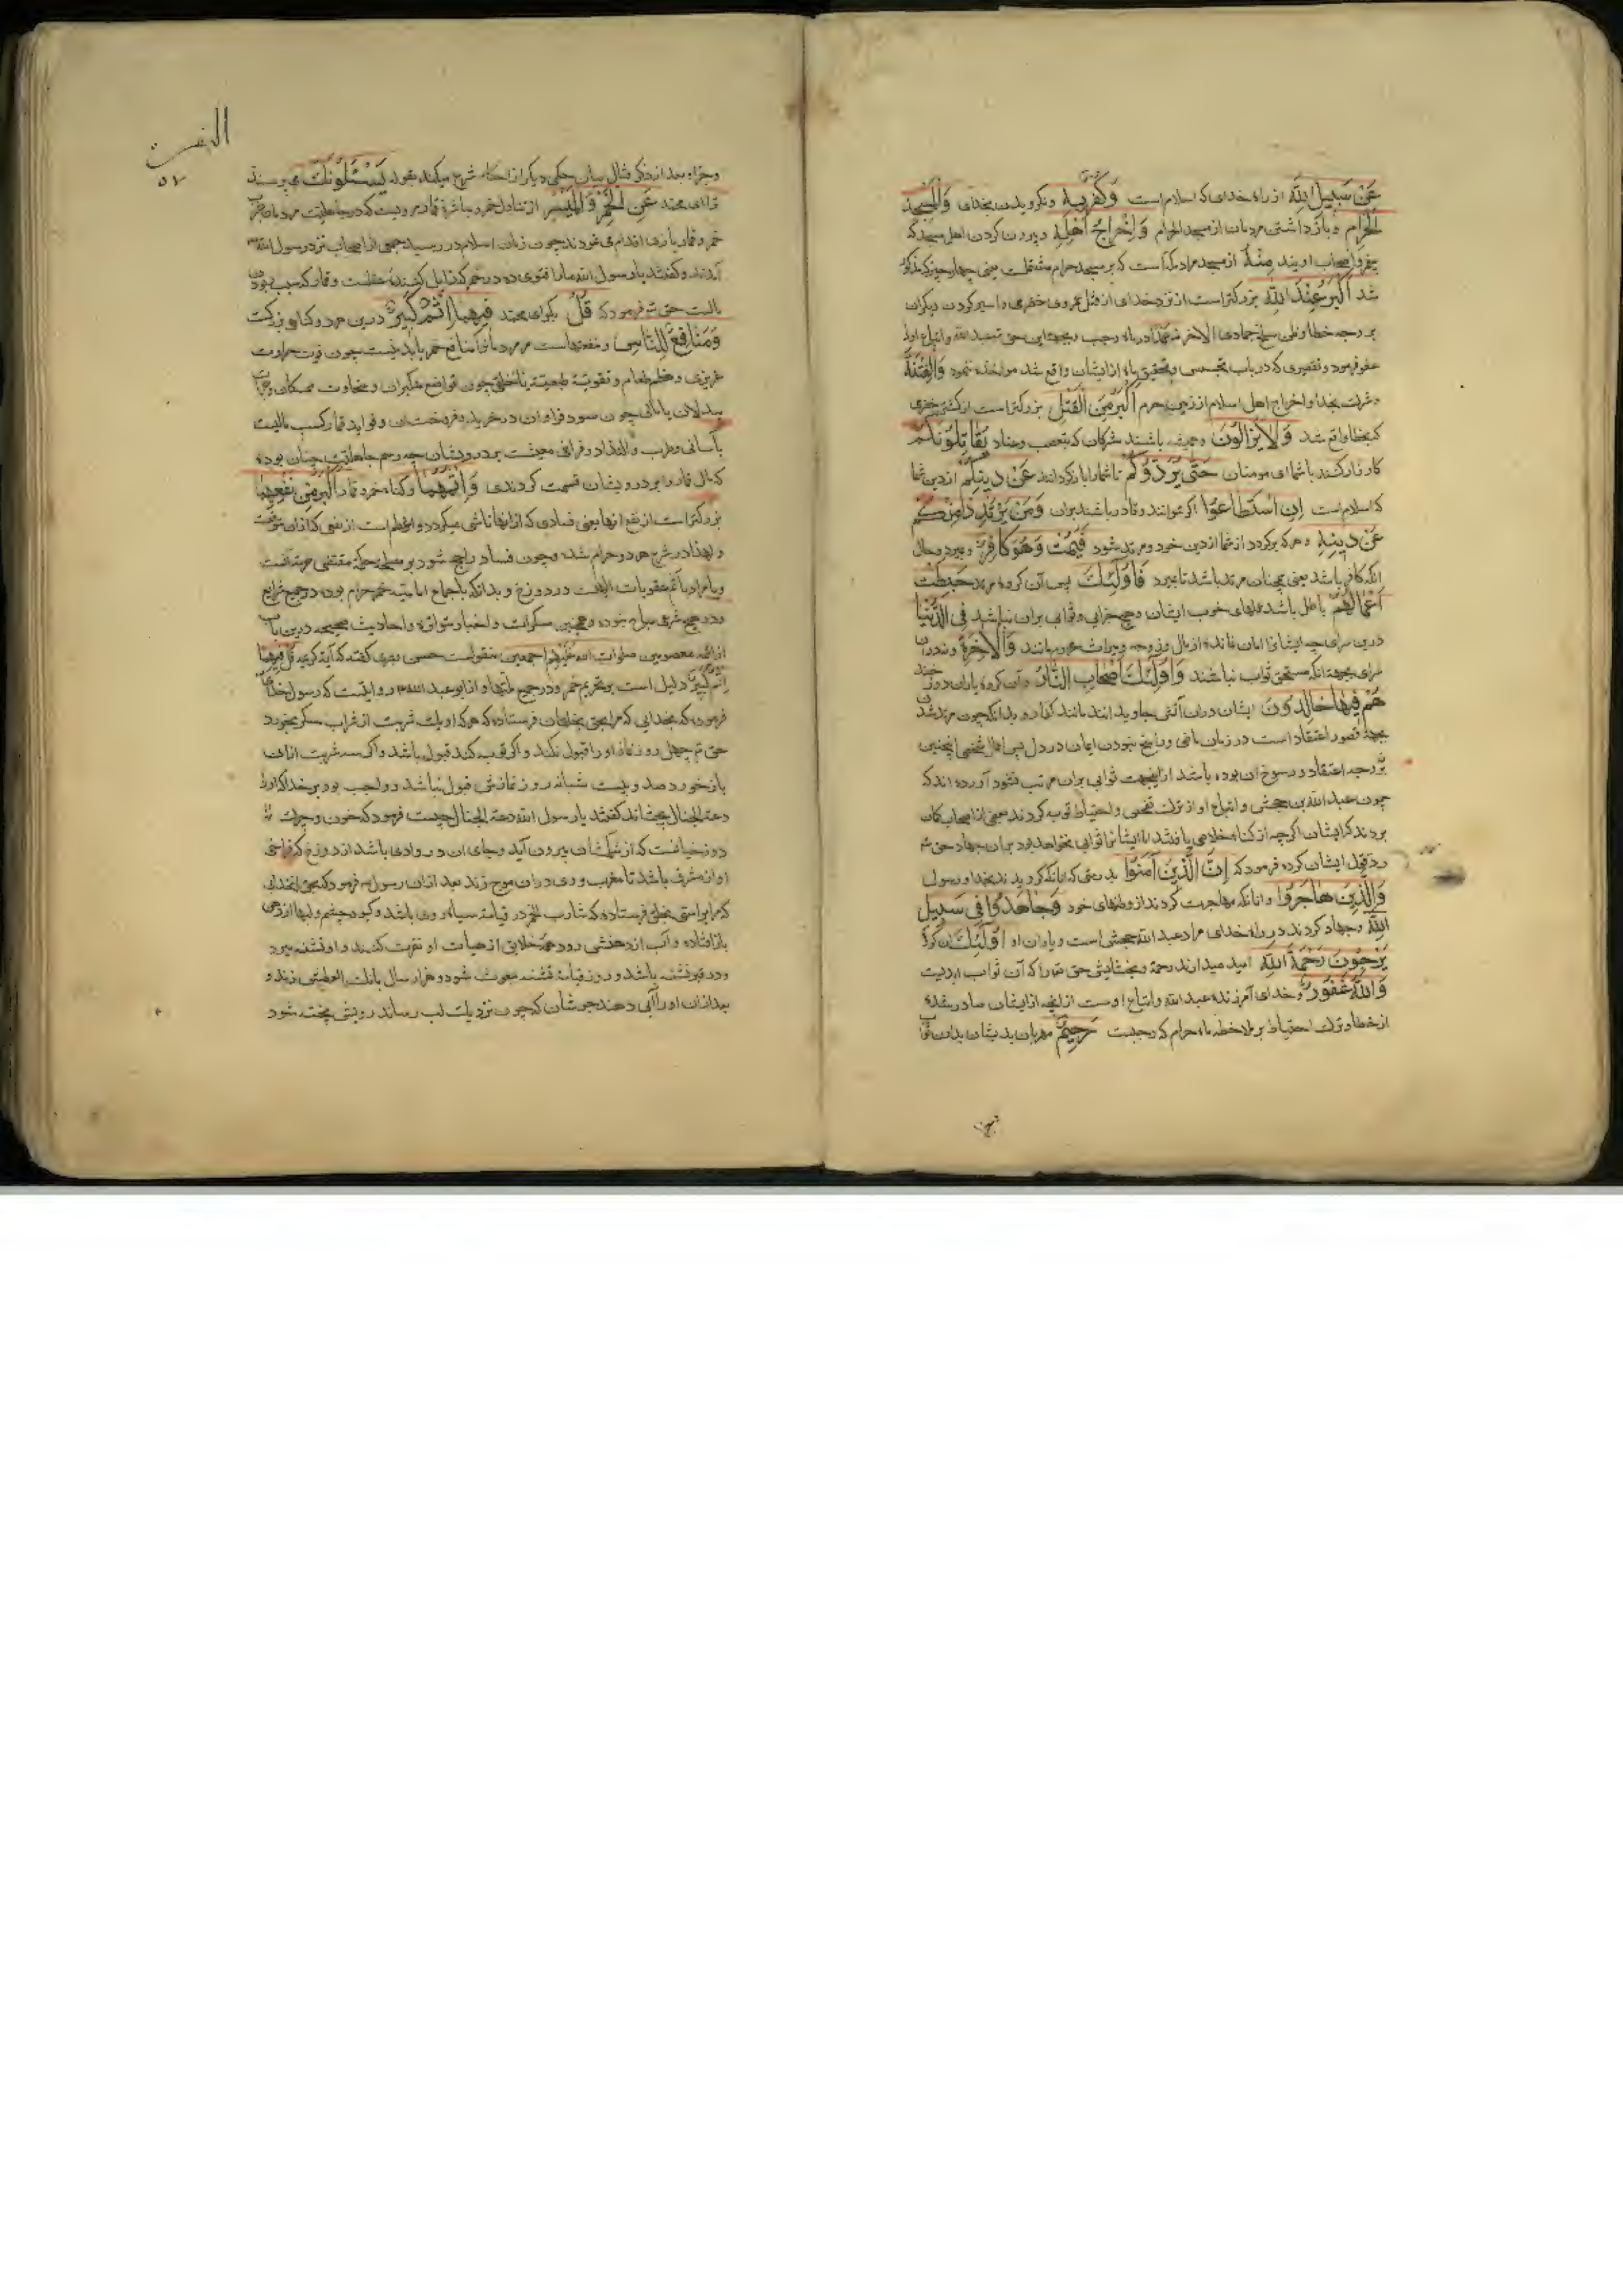 عَنْ سَبِيلِ اللَّهِ از راه خدای که اسلام است وَكُفْرٌ بِهِ ونکرویدن بخدای وَالْمَسْجِدِ
الْحَرَامِ وبازداشتن مردمان از مسجد الحرام وَإِخْرَاجُ أَهْلِهِ وبیرون کردن اهل مسجد که
اویند مِنْهُ از مسجد مراد مکه است که بر مسجد حرام مشتملست یعنی چهار چیز که مذکور
شد أَكْبَرُ عِنْدَ اللَّهِ بزرکتر است از نزد خدای از قتل عمروی حضرمی واسیر کردن دیکران
بر وجه خطا وظن سلخ جمادی الآخر نه عمدا در ماه رجب وبجهة این حق عبد الله واتباع او را
عفو فرمود وتقصیری که در باب تجسس وتحقیق ماه از ایشان واقع شد مواخذه ننمود وَالْفِتْنَةُ
وشرک بخدا واخراج اهل اسلام از زمین حرم أَكْبَرُ مِنَ الْقَتْلِ بزرکتر است از کشتن حضرمی
که بخطا واقع شد وَلَا يَزَالُونَ وهمیشه باشند مشرکان که بتعصب وعناد يُقَاتِلُونَكُمْ
کارزار کنند با شما ای مومنان حَتَّى يَرُدُّوكُمْ تا شما را باز کردانند عَنْ دِينِكُمْ از دین شما
که اسلام است إِنِ اسْتَطَاعُوا اکر توانند وقادر باشند بران وَمَنْ يَرْتَدِدْ مِنْكُمْ
عَنْ دِينِهِ وهر که برکردد از شما از دین خود ومرتد شود فَيَمُتْ وَهُوَ كَافِرٌ وبمیرد وحال
انکه کافر باشد یعنی همچنان مرتد باشد تا بمیرد فَأُولَئِكَ پس آن کروه مرتد حَبِطَتْ
أَعْمَالُهُمْ باطل باشد عملهای خوب ایشان وهیچ جزایی وثوابی بران نباشد فِي الدُّنْيَا
درین سرای چه ایشانرا امان نماند واز مال وزوجه ومیراث محروم مانند وَالْآخِرَةِ ودران
سرای بجهة انکه مستحق ثواب نباشند وَأُولَئِكَ أَصْحَابُ النَّارِ وآن کروه یاران دوزخند
هُمْ فِيهَا خَالِدُونَ ایشان دران آتش جاوید انند مانند کفار وبدانکه چون مرتد شدن
بجهة قصور اعتقاد است در زمان ماضی وراسخ نبودن ایمان در دل پس اعمال شخصی اینچنین
نه بر وجه اعتقاد ورسوخ ان بوده باشد ازینجهت ثوابی بران مرتب نشود آورده اند که
چون عبد الله بن جحش واتباع او از ترک تفحص واحتیاط توبه کردند بعضی از اصحاب کمان
بردند که ایشان اکرچه از کناه خلاصی یافتند اما ایشانرا ثوابی نخواهد بود بران جهاد حق تعالی
رد قول ایشان کرده فرمود که إِنَّ الَّذِينَ آمَنُوا بدرستی که انانکه کرویدند بخدا ورسول
وَالَّذِينَ هَاجَرُوا وانانکه مهاجرت کردند از وطنهای خود وَجَاهَدُوا فِي سَبِيلِ
اللَّهِ وجهاد کردند در راه خدای مراد عبد الله جحش است ویاران او أُولَئِكَ ان کروه
يَرْجُونَ رَحْمَةَ اللَّهِ امید میدارند رحمة وبخشایش حق تعالی را که آن ثواب ابدیست
وَاللَّهُ غَفُورٌ وخدای آمرزنده عبد الله واتباع اوست از انچه از ایشان صادر شده
از خطا وترک احتیاط بر ملاحظه ماه حرام که رجبست رَحِيمٌ مهربان بدیشان بدادن ثواب
البقرة
٥٧
وجزا وبعد از ذکر قتال بیان حکمی دیکر از احکام شرع میکند بقوله يَسْئَلُونَكَ می پرسند
ترا ای محمد عَنِ الْخَمْرِ وَالْمَيْسِرِ از تناول خمر ومباشرة قمار مرویست که در جاهلیت مردمان بشرب
خمر وقمار بازی اقدام می نمودند چون زمان اسلام در رسید جمعی از اصحاب نزد رسول الله
آمدند وکفتند یا رسول الله ما را فتوی ده در خمر که زایل کننده عقلست وقمار که سبب بودن
مالست حق تعالی فرمود که قُلْ بکو ای محمد فِيهِمَا إِثْمٌ كَبِيرٌ درین هر دو کناهی بزرکست
وَمَنَافِعُ لِلنَّاسِ ومنفعتهاست مر مردمان را اما منافع خمر یا بدنیست چون قوت حرارت
غریزی وهضم طعام وتقویة طبیعت یا خلقی چون تواضع متکبران وسخاوت ممسکان وشجاعت
بددلان یا مالی چون سود فراوان در خرید وفروخت ان وفواید قمار کسب مالیست
بآسانی وطرب والتذاذ وفراخی معیشت بر درویشان چه رسم جاهلیت چنان بود
که مال قمار را بر درویشان قسمت کردندی وَإِثْمُهُمَا وکناه خمر وقمار أَكْبَرُ مِنْ نَفْعِهِمَا
بزرکتر است از نفع انها یعنی فسادی که از اینها ناشی میکردد واعظم است از نفعی که از ان متوقعست
ولهذا در شرع هر دو حرام شده وچون فساد راجح شود بر مصلحت حکمة مقتضی حرمتست
ویا مراد باثم عقوبات اخرتست در دوزخ وبدانکه باجماع امامیه خمر حرام بوده در جمیع شرایع
ودر هیچ شرعی مباح نبوده وهمچنین مسکرات واخبار متواتره واحادیث صحیحه درین باب
از ائمه معصومین صلوات الله علیهم اجمعین منقولست حسن بصری کفته که آیه کریمه قل فیهما
اثم کبیر دلیل است بر تحریم خمر ودر جمیع ملتها واز ابو عبد الله روایتست که رسول خدا
فرمود که بخدایی که مرا بحق بخلقان فرستاده که هر که او یک شربت از شراب مسکر بخورد
حق تعالی چهل روز نماز او را قبول نکند واکر توبه کند قبول باشد واکر سه شربت از ان
باز خورد صد وبیست شبانه روز نمازش قبول نباشد وواجب بود بر خدا که او را
ردغة الخبال چشاند کفتند یا رسول الله ردغة الخبال چیست فرمود که خون وچرک
دوزخیانست که از شکمشان بیرون آید وجای ان در وادی باشد از دوزخ که فراخی
او از مشرق باشد تا مغرب ووی دران موج زند بعد از ان رسول فرمود که بحق انخدایی
که مرا براستی بخلق فرستاده که شارب الخمر در قیامة سیاه روی باشد وکبود چشم ولبها از هم
باز افتاده وآب از دهنش رود وهمه خلایق از هیات او نفرت کنند واو تشنه میرد
ودر قبر تشنه باشد وروز قیامة تشنه مبعوث شود وهزار سال بانک العطش زند و
بعد از ان او را آبی دهند جوشان که چون نزدیک لب رساند رویش پخته شود